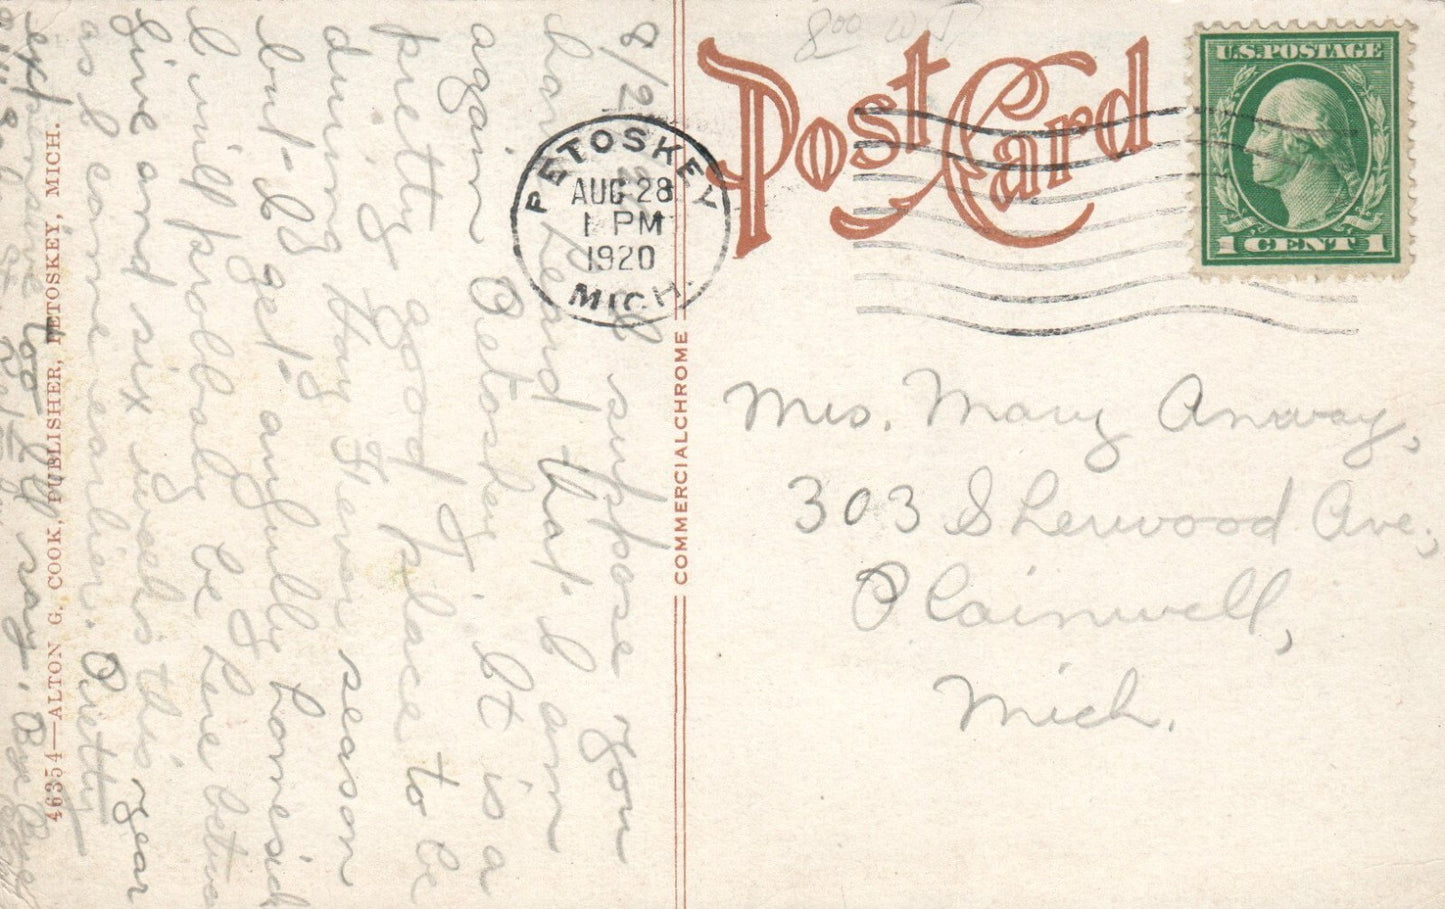 8/2 I suppose you
have heard that I am
again Petoskey. It is a
pretty good place to be
during Hay Fever season
but I get awfully homesick
I will probably be here between
five and six weeks this year
as I came earlier. Pretty
expensive too I'll say.
46354—ALTON G. COOK, PUBLISHER, PETOSKEY, MICH.
PETOSKEY
AUG 28
1 PM
1920
MICH.
COMMERCIALCHROME
8.00
Post Card
U.S. POSTAGE
1 CENT 1
Mrs. Mary Anway,
303 Sherwood Ave.,
Plainwell,
Mich.